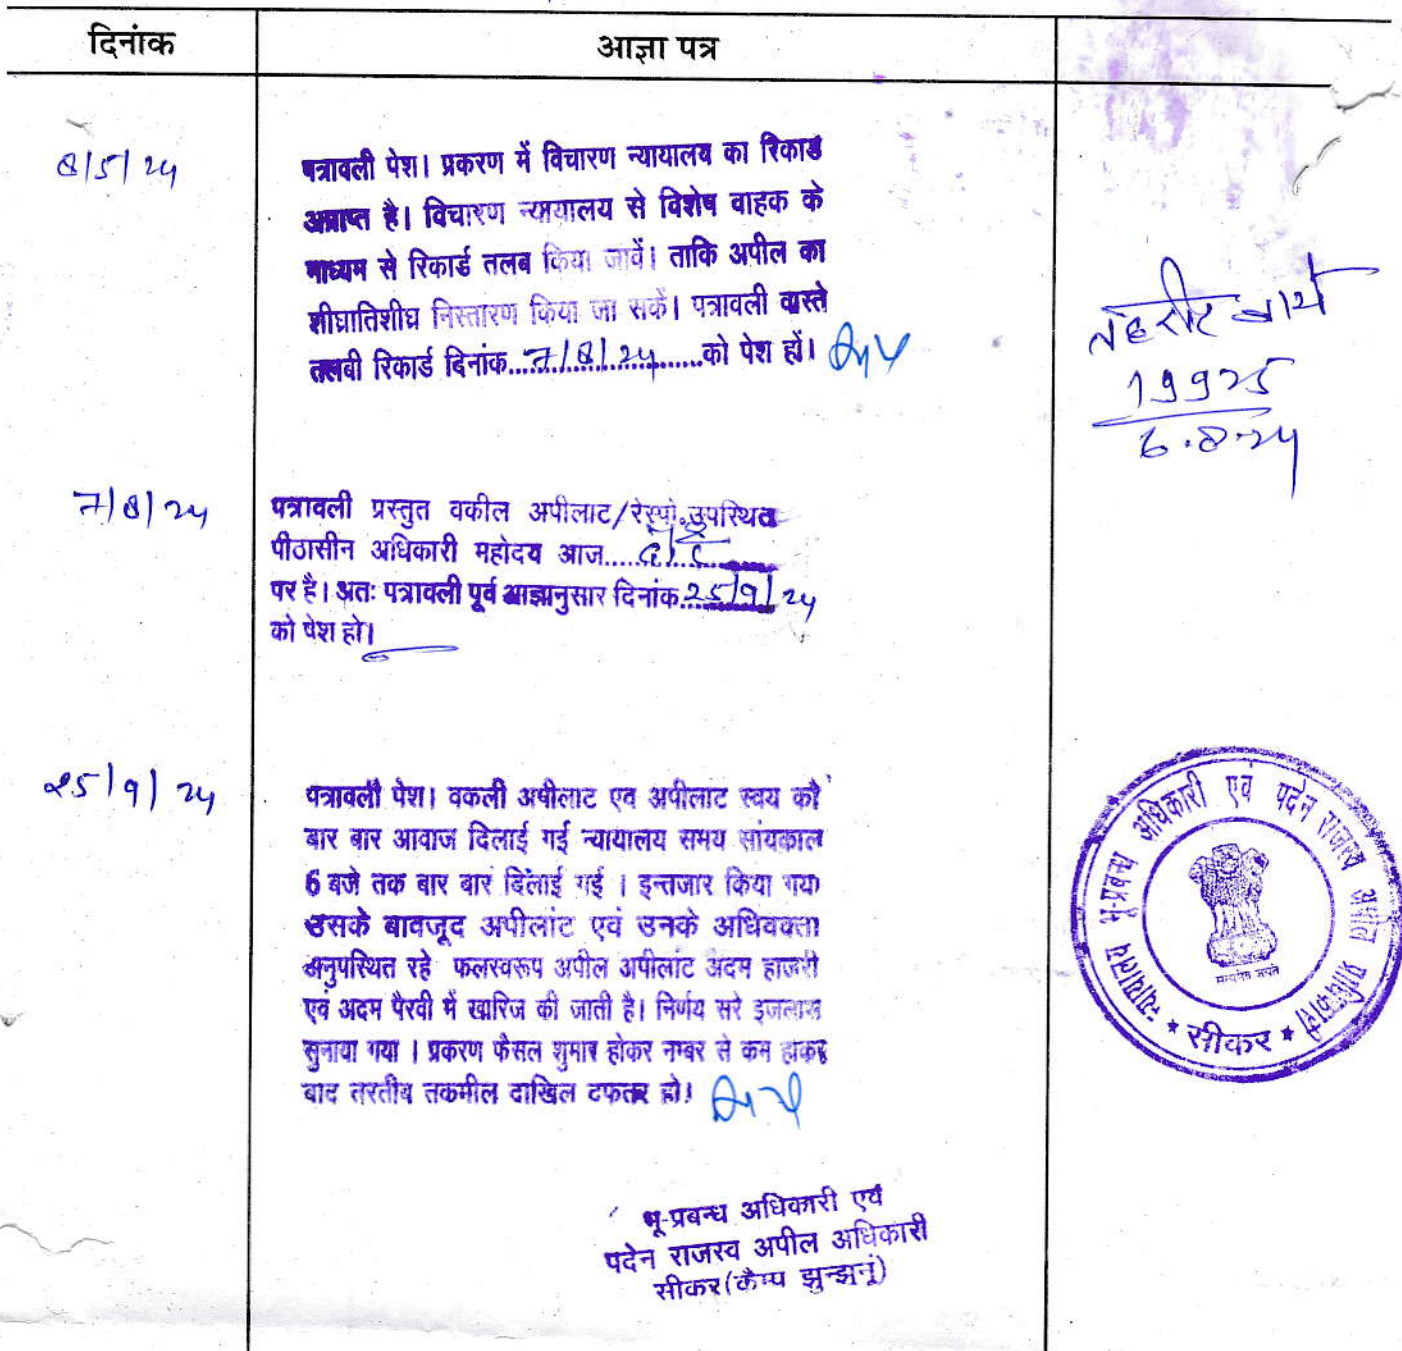 दिनांक
आज्ञा पत्र
8/5/24
पत्रावली पेश। प्रकरण में विचारण न्यायालय का रिकार्ड
अप्राप्त है। विचारण न्यायालय से विशेष वाहक के
माध्यम से रिकार्ड तलब किया जावें। ताकि अपील का
शीघ्रातिशीघ्र निस्तारण किया जा सकें। पत्रावली वास्ते
तलबी रिकार्ड दिनांक.....7/8/24.....को पेश हों।
19925
6.8.24
7/8/24
पत्रावली प्रस्तुत वकील अपीलाट/रेस्पो.उपस्थित
पीठासीन अधिकारी महोदय आज......
पर है। अतः पत्रावली पूर्व आज्ञानुसार दिनांक 25/9/24
को पेश हो।
25/9/24
पत्रावली पेश। वकली अपीलाट एव अपीलाट स्वय को
बार बार आवाज दिलाई गई न्यायालय समय सांयकाल
6 बजे तक बार बार दिलाई गई । इन्तजार किया गया
उसके बावजूद अपीलांट एवं उनके अधिवक्ता
अनुपस्थित रहे फलस्वरूप अपील अपीलांट अदम हाजरी
एवं अदम पैरवी में खारिज की जाती है। निर्णय सरे इजलास
सुनाया गया । प्रकरण फैसल शुमार होकर नम्बर से कम होकर
बाद तरतीब तकमील दाखिल दफतर हो।
न्यायालय भू-प्रबन्ध अधिकारी एवं पदेन राजस्व अपील अधिकारी
सत्यमेव जयते
★ सीकर ★
भू-प्रबन्ध अधिकारी एवं
पदेन राजस्व अपील अधिकारी
सीकर(कैम्प झुन्झनूं)